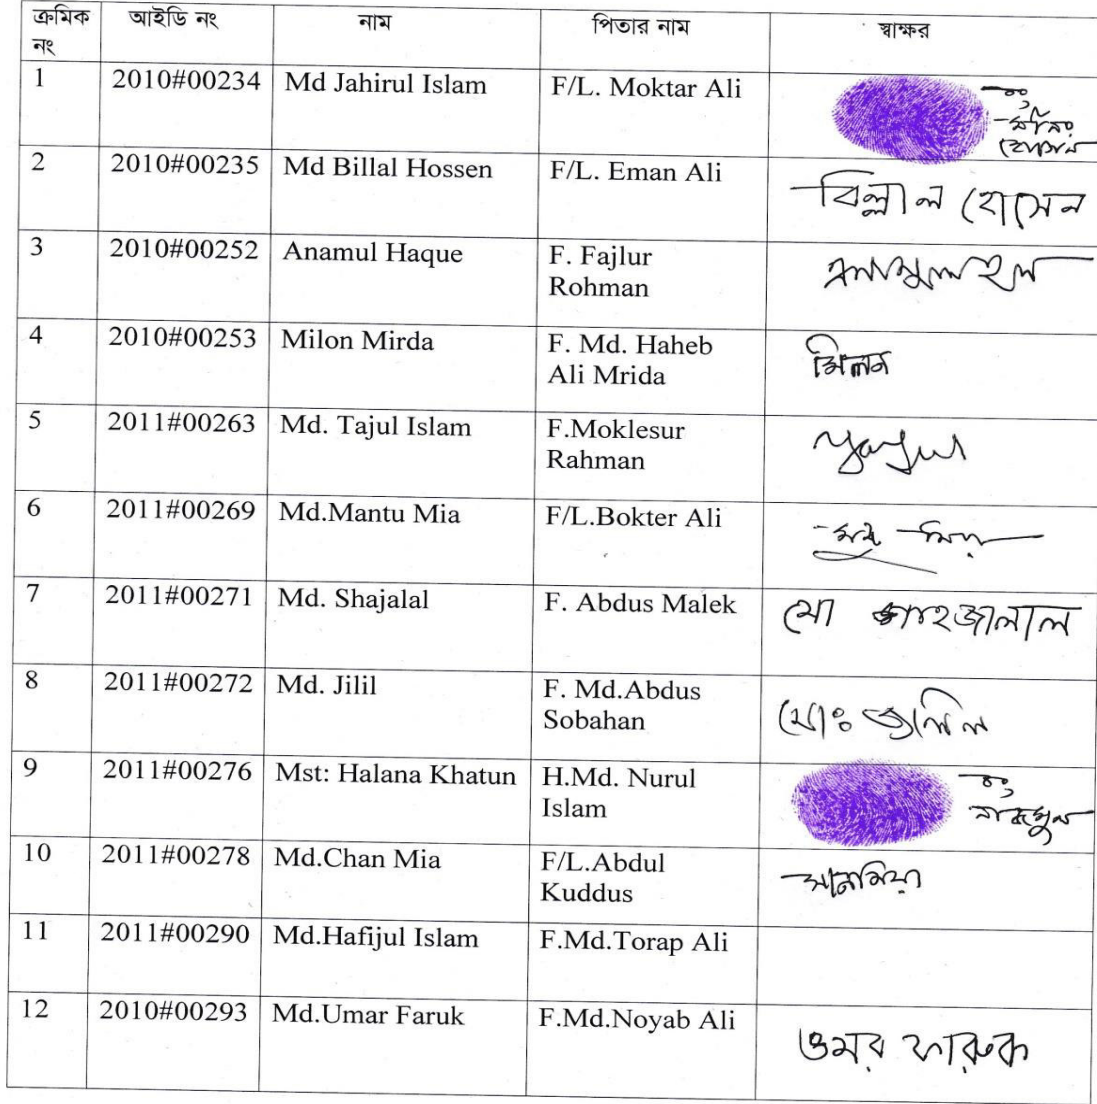 ক্রমিক নং আইডি নং নাম পিতার নাম স্বাক্ষর
1 2010#00234 Md Jahirul Islam F/L. Moktar Ali
2 2010#00235 Md Billal Hossen F/L. Eman Ali বিল্লাল হোসেন
3 2010#00252 Anamul Haque F. Fajlur Rohman
4 2010#00253 Milon Mirda F. Md. Haheb Ali Mrida মিলন
5 2011#00263 Md. Tajul Islam F.Moklesur Rahman
6 2011#00269 Md.Mantu Mia F/L.Bokter Ali
7 2011#00271 Md. Shajalal F. Abdus Malek মো শাহজালাল
8 2011#00272 Md. Jilil F. Md.Abdus Sobahan মোঃ জলিল
9 2011#00276 Mst: Halana Khatun H.Md. Nurul Islam
10 2011#00278 Md.Chan Mia F/L.Abdul Kuddus
11 2011#00290 Md.Hafijul Islam F.Md.Torap Ali
12 2010#00293 Md.Umar Faruk F.Md.Noyab Ali ওমর ফারুক